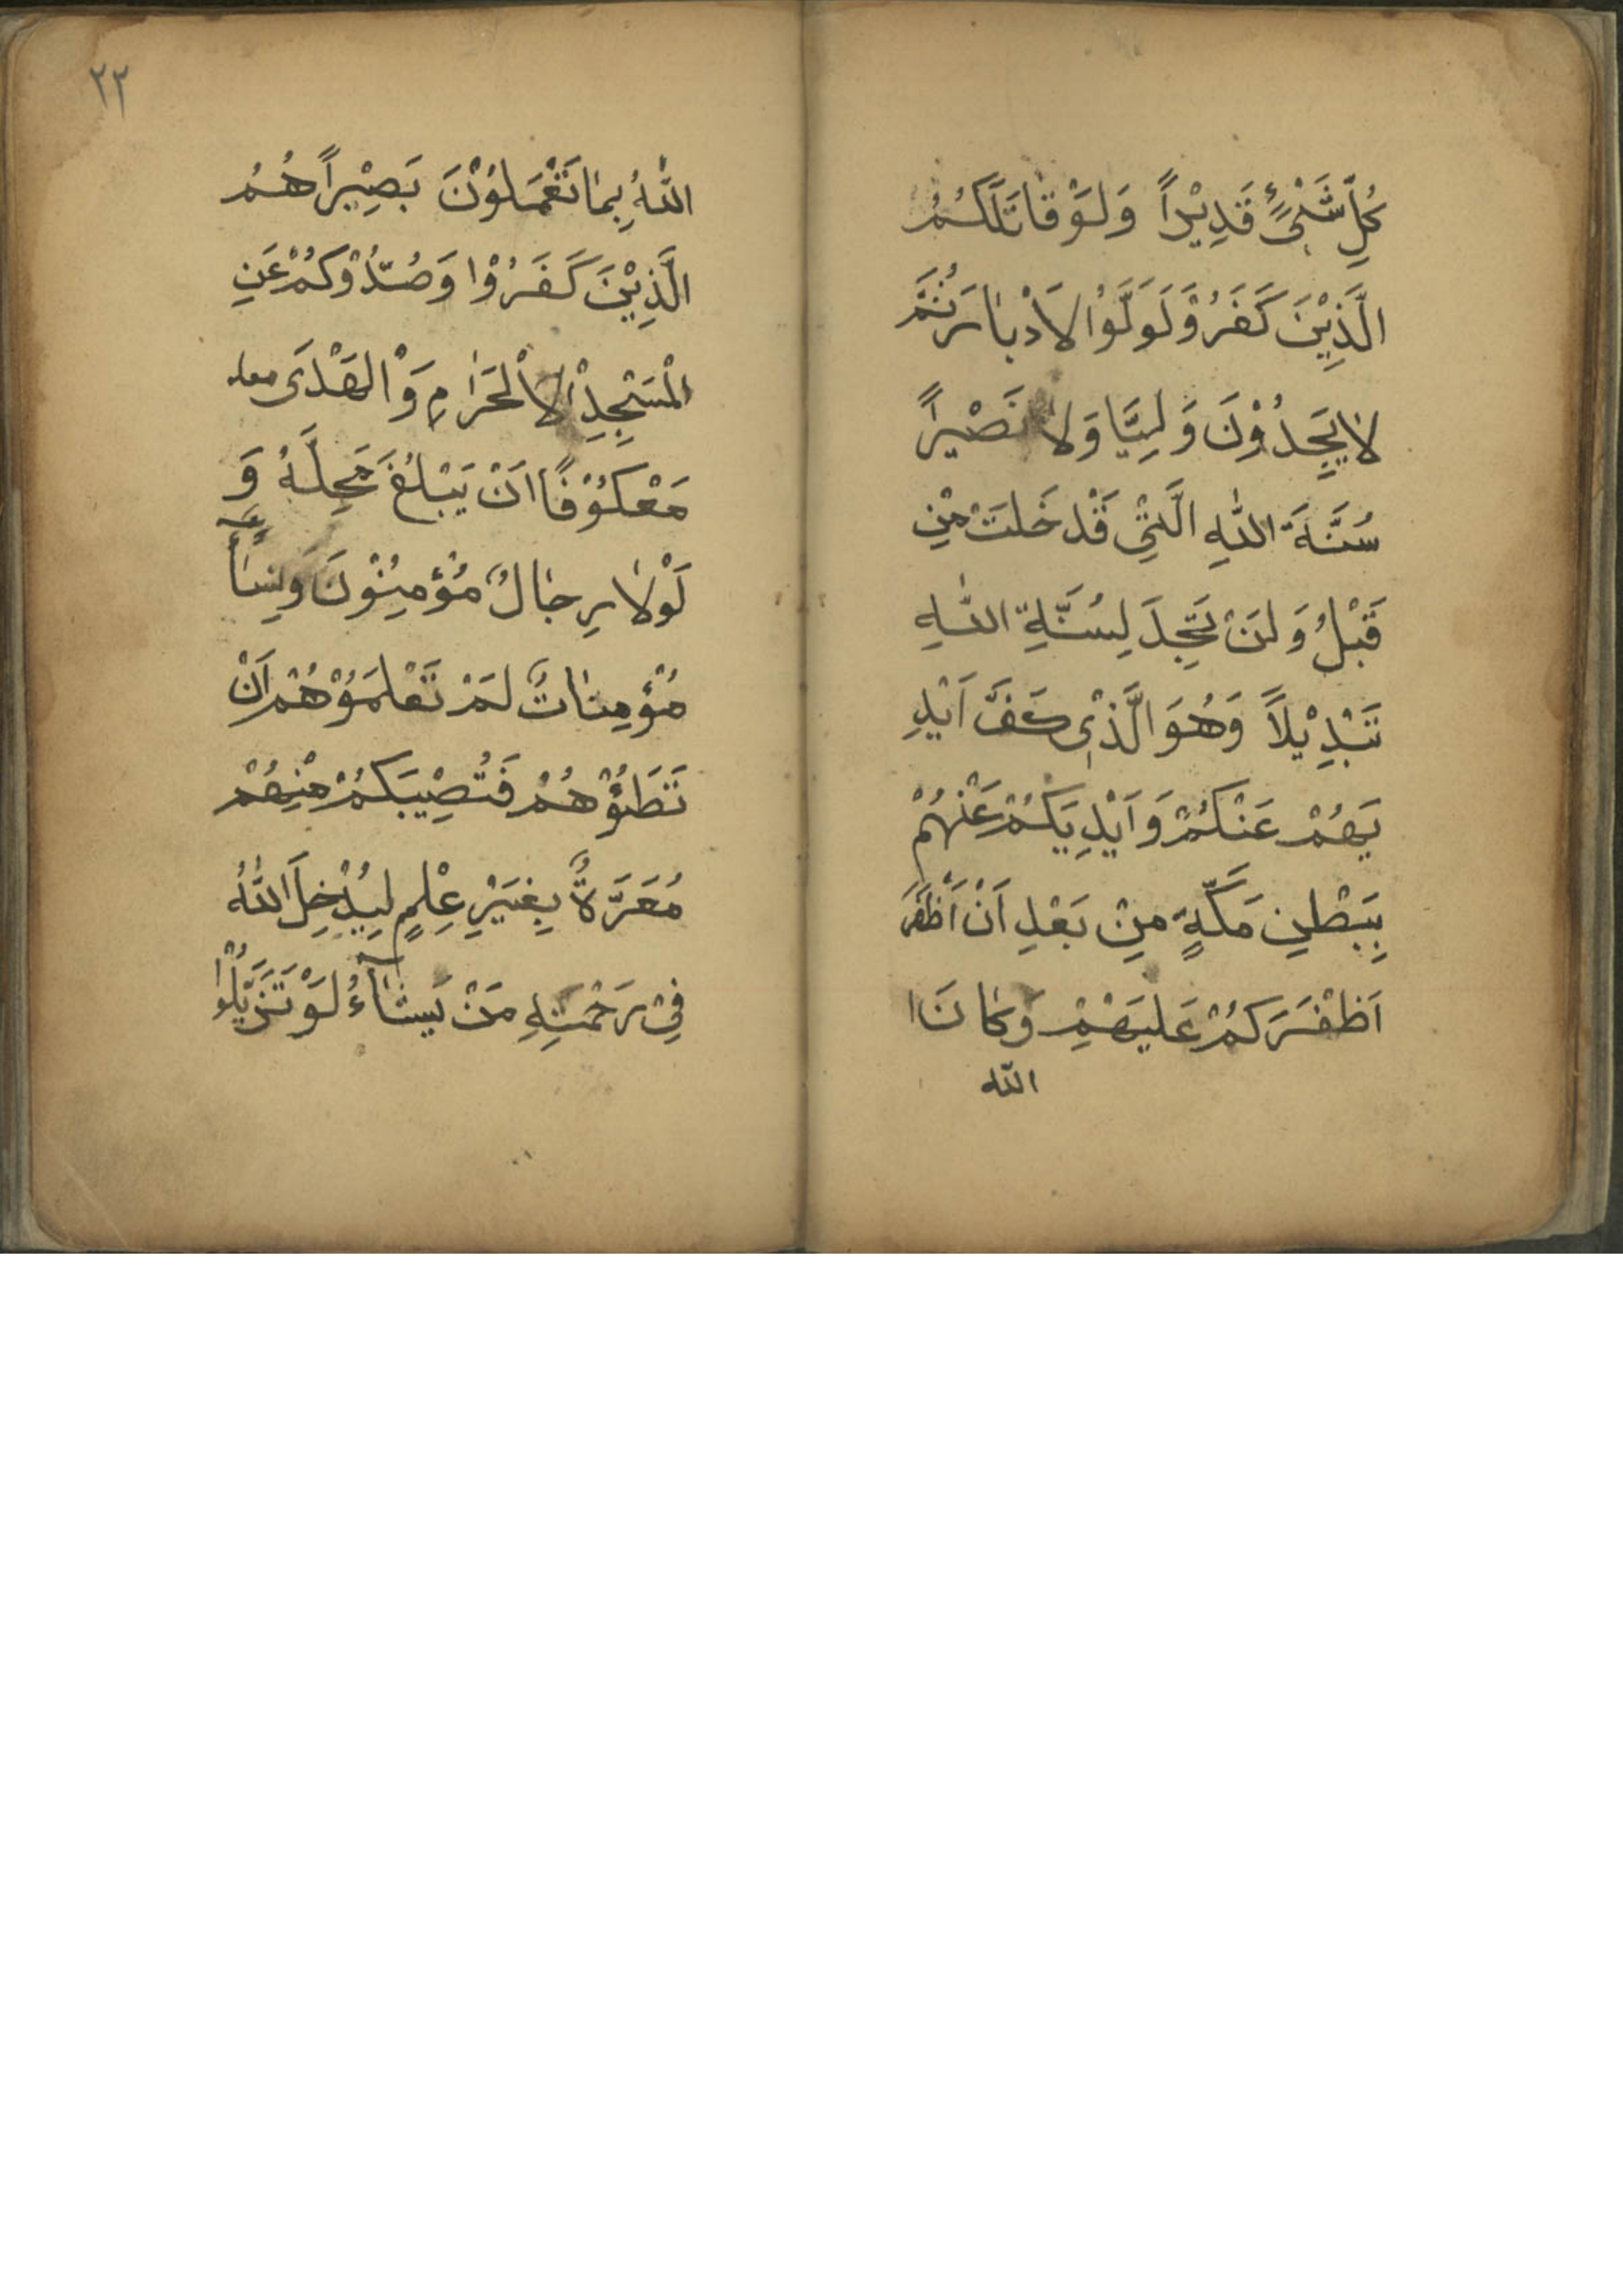 كُلِّ شَىْءٍ قَدِيْراً وَلَوْ قَاتَلَكُمُ
الَّذِيْنَ كَفَرُوْ لَوَلَّوُا لَادْبَارَ ثُمَّ
لَا يَجِدُوْنَ وَلِيًّا وَلَا نَصْيِراً
سُنَّةَ اللّٰهِ الَّتِيْ قَدْ خَلَتْ مْنِ
قَبْلُ وَلَنْ تَجِدَ لِسُنَّةِ اللّٰهِ
تَبْدِيْلاً وَهُوَ الَّذْىِ كَفَّ اَيْدِ
يَهُمْ عَنْكُمْ وَاَيْدِيَكُمْ عَنْهُمْ
بِبَطْنِ مَكَّةٍ مِنْ بَعْدِ اَنْ اَظْفَرَ
اَظْفَرَكُمْ عَلَيَهْمِْ وَكَانَ ا
اللّه
٢٢
اللّٰهُ بِمَا تَعْمَلُوْنَ بَصِيْراً هُمُ
الَّذِيْنَ كَفَرُوْا وَصُدُّوْكُمْ عَنِ
الْمَسْجِدِْ الاَلْحَرَامِ وَْالْهَدْىَ معك
مَعْكُوْفًا اَنْ يَبْلُغَ مَحِلَّهُ وَ
لَوْلَا رِجَالٌ مُؤْمِنُوْنَ وَنِسَآءٌ
مُؤْمِنَاتٌ لَمْ تَعْلَمُوْهُمْ اَنْ
تَطَئُوْهُمْ فَتُصِيْبَكُمْ مْنِهُمْ
مُعَرَّةٌ بِغَيْرِ عِلْمٍ لِيُدْخِلَ اللّٰهُ
فِىْ رَحْمَتِهِ مَنْ يَشَآءُ لَوْ تَزَيَّلُوْا